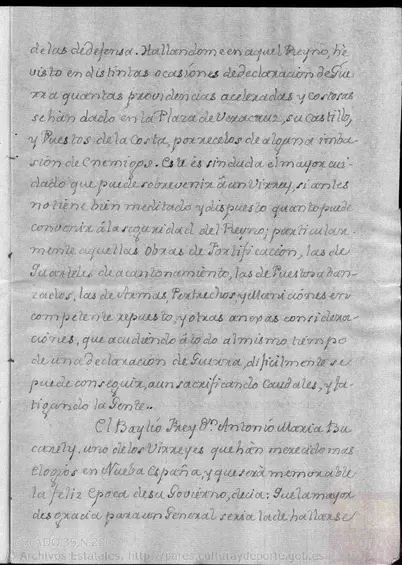 de las de defensa. Hallandome en aquel Reyno, hé
visto en distintas ocasiones de declaracion de Gue-
rra quantas providencias aceleradas y costosas
se hán dado en la Plaza de Veracruz, su Castillo,
y Puestos de la Costa, por recelos de alguna imba-
sion de Enemigos. Este és sin duda el mayor cui-
dado que puede sobrevenir á un Virrey, si antes
no tiene bien meditado y dispuesto quanto puede
convenir á la seguridad del Reyno; particular-
mente aquellas Obras de Fortificacion, las de
Quarteles de acantonamiento, las de Puestos aban-
zados, las de Armas, Pertrechos, y Municiones en
competente repuesto, y otras anexas considera-
ciones, que acudiendo á todo al mismo tiempo
de una declaracion de Guerra, dificilmente se
puede conseguir, aun sacrificando Caudales, y fa-
tigando la Gente.
El Baylio Frey Dn. Antonio Maria Bu
carely, uno de los Virreyes que hán merecido mas
elogios en Nueba España, y que será memorable
la feliz Epoca de su Govierno, decia: Que la mayor
desgracia para un General seria la de hallarse
ADO,35,N.28
Archivos Estatales, http://pares.culturaydeporte.gob.es